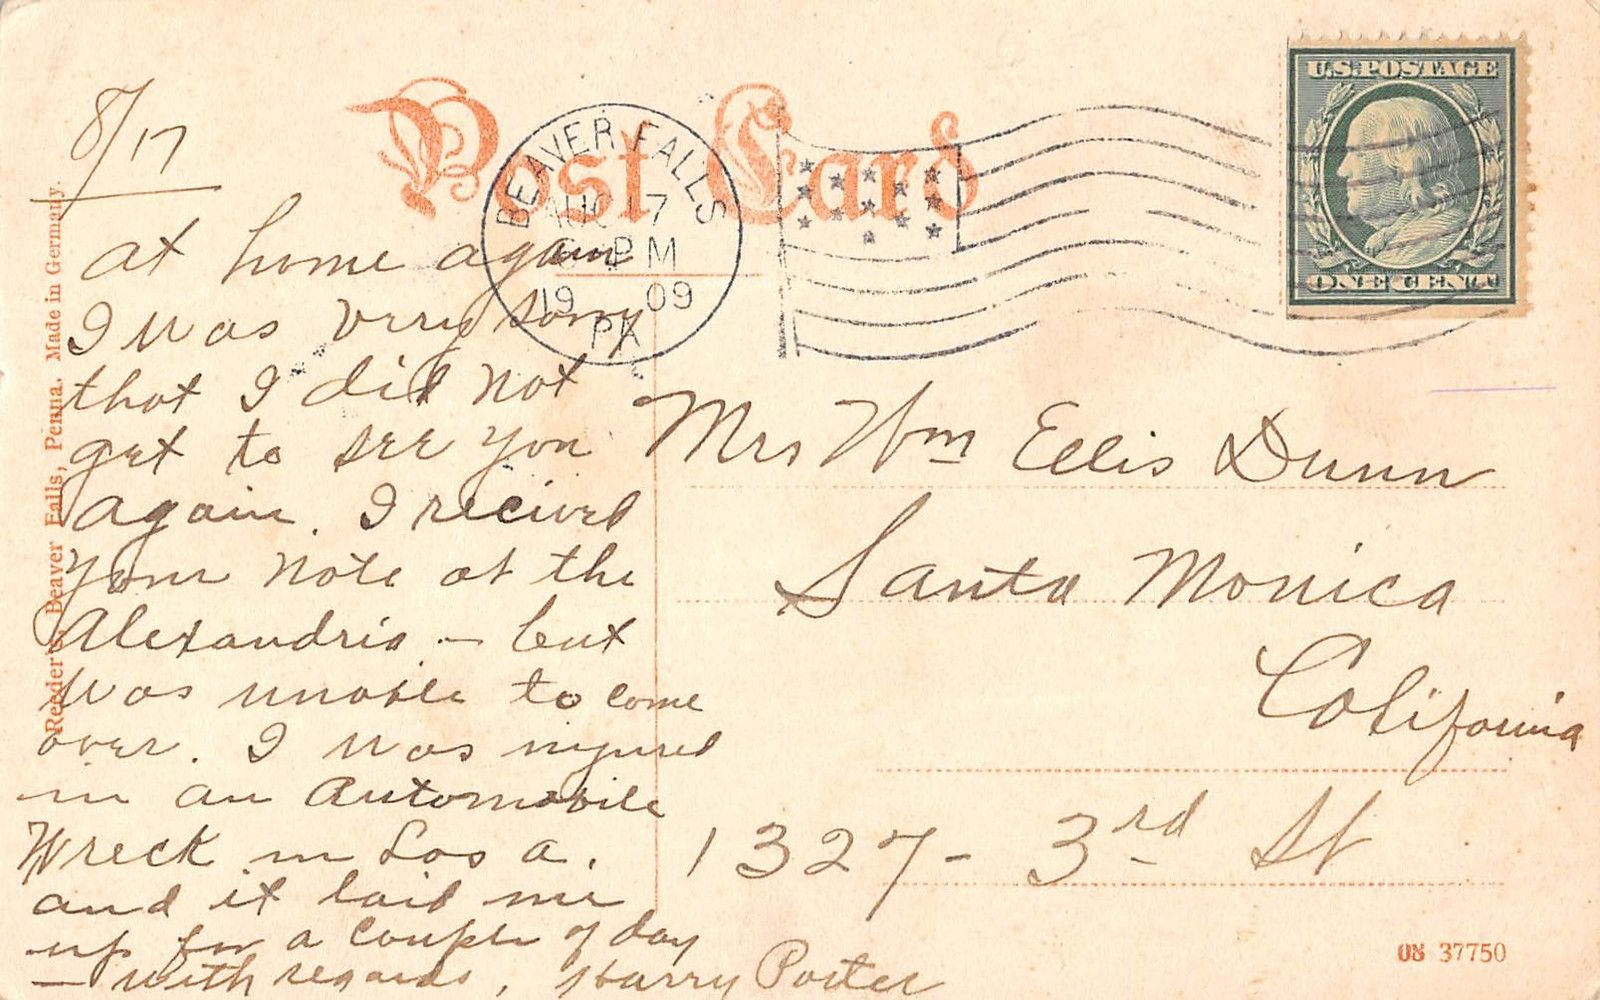 Post Card
BEAVER FALLS
AUG 17
PM
1909
PA
U.S. POSTAGE
ONE CENT
8/17
at home again
I was very sorry
that I did not
get to see you
again. I recieved
your note at the
Alexandria — but
was unable to come
over. I was injured
in an Automobile
Wreck in Los A.
and it laid me
up for a couple of day
— with regards, Harry Porter
Mrs Wm Ellis Dunn
Santa Monica
California
1327 - 3rd St
Reeder's, Beaver Falls, Penna. Made in Germany.
08 37750